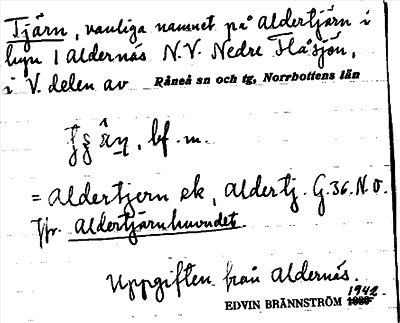 Tjärn, vanliga namnet på Aldertjärn i
byn Aldernäs N.V. Nedre Flåsjön,
i V. delen av Råneå sn och tg, Norrbottens län
bf. m.
= Aldertjern ek, Aldertj. G.36.N.O.
Jfr. Aldertjärnhuvudet.
Uppgiften från Aldernäs.
EDVIN BRÄNNSTRÖM 1942